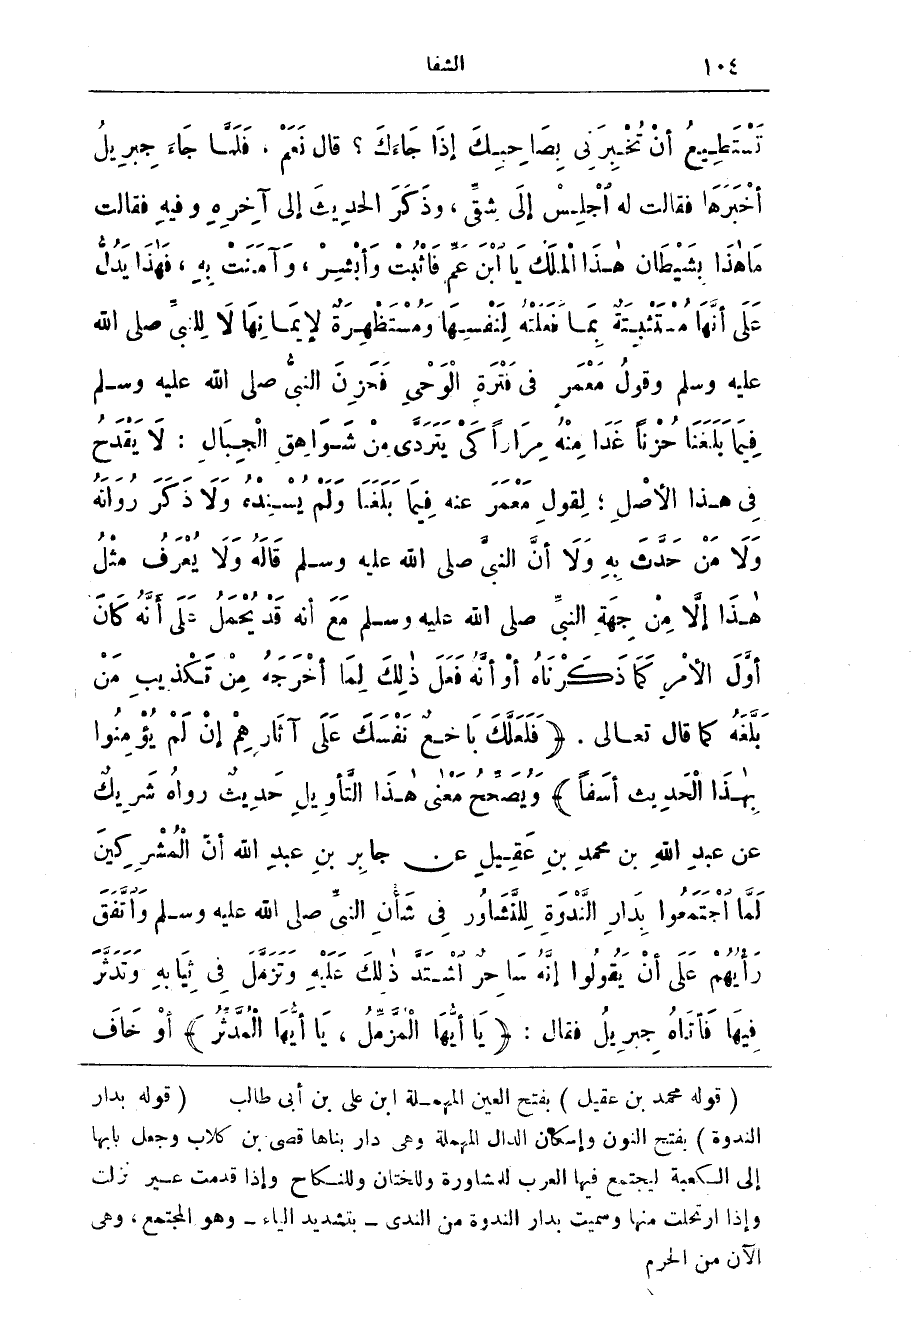 ١٠٤ الشفا
تَسْتَطِيعُ أَنْ تُخْبِرَنِى بِصَاحِبِكَ إِذَا جَاءَكَ ؟ قال نَعَمْ ، فَلَمَّا جَاءَ جِبرِيلُ
أَخْبَرَهَا فقالت له ٱجْلِسْ إِلَى شِقِّى ، وذَكَرَ الحديثَ إلى آخِرِهِ وفيهِ فقالت
مَاهٰذَا بِشَيْطَان هٰذَا الْمَلَكُ يَا ٱبْنَ عَمِّ فَاثْبُتْ وَأَبْشِرْ ، وَآمَنَتْ بِهِ ، فَهٰذَا يَدُلُّ
عَلَى أَنَّهَا مُسْتَثْبِتَةٌ بِمَا فَعَلَتْهُ لِنَفْسِهَا وَمُسْتَظْهِرَةٌ لإِيمَانِهَا لَا لِلنبىِّ صلى الله
عليه وسلم وقولُ مَعْمَرٍ فى فَتْرَةِ الْوَحْىِ فَحَزِنَ النبىُّ صلى الله عليه وسلم
فِيمَا بَلَغَنَا حُزْناً غَدَا مِنْهُ مِرَاراً كَىْ يَتَرَدَّى مِنْ شَوَاهِقِ الْجِبَالِ : لَا يَقْدَحُ
فِى هذا الأَصْلِ ؛ لِقولِ مَعْمَرَ عنه فِيمَا بَلَغَنَا وَلَمْ يُسْنِدْهُ وَلَا ذَكَرَ رُوَاتَهُ
وَلَا مَنْ حَدَّثَ بِهِ وَلَا أَنَّ النبىَّ صلى الله عليه وسلم قَالَهُ وَلَا يُعْرَفُ مثْلُ
هٰذَا إلَّا مِنْ جِهَةِ النبىِّ صلى الله عليه وسلم مَعَ أنه قَدْ يُحْمَلُ عَلَى أَنَّهُ كَانَ
أَوَّلَ الأَمْرِ كَمَا ذَكَرْنَاهُ أَوْ أَنَّهُ فَعَلَ ذٰلِكَ لِمَا أَخْرَجَهُ مِنْ تَكْذِيبِ مَنْ
بَلَّغَهُ كما قال تعالى . ﴿ فَلَعَلَّكَ بَاخِعٌ نَفْسَكَ عَلَى آثَارِهِمْ إِنْ لَمْ يُؤْمِنُوا
بِهٰذَا الْحَدِيث أَسَفاً ﴾ وَيُصَحِّحُ مَعْنَى هٰذَا التَّأْوِيلِ حَدِيثٌ رواهُ شَرِيكٌ
عن عبدِ اللهِ بن محمدِ بنِ عَقِيلٍ عن جابِرِ بنِ عبدِ الله أنّ الْمُشْرِكِينَ
لَمَّا اجْتَمَعُوا بِدَارِ النَّدْوَةِ لِلتَّشَاوُرِ فى شَأْنِ النبىِّ صلى الله عليه وسلم وَاتَّفَقَ
رَأْيُهُمْ عَلَى أَنْ يَقُولُوا إِنَّهُ سَاحِرٌ اشْتَدَّ ذٰلِكَ عَلَيْهِ وَتَزَمَّلَ فى ثِيَابِهِ وَتَدَثَّرَ
فِيهَا فَأَتَاهُ جِبرِيلُ فقال : ﴿ يَا أَيُّهَا الْمُزَّمِّلُ ، يَا أَيُّهَا الْمُدَّثِّرُ ﴾ أَوْ خَافَ
( قوله محمد بن عقيل ) بفتح العين المهملة ابن على بن أبى طالب ( قوله بدار
الندوة ) بفتح النون وإسكان الدال المهملة وهى دار بناها قصى بن كلاب وجعل بابها
إلى الكعبة ليجتمع فيها العرب للمشاورة وللختان وللنكاح وإذا قدمت عير نزلت
وإذا ارتحلت منها وسميت بدار الندوة من الندى ـ بتشديد الياء ـ وهو المجتمع ، وهى
الآن من الحرم